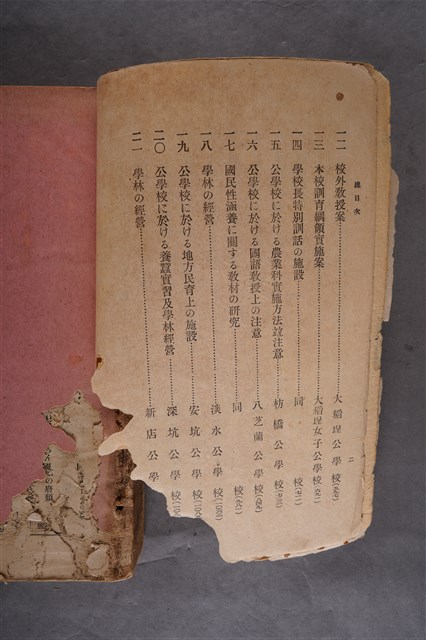 總目次
一二 校外敎授案……大稻埕公學校
一三 本校訓育綱領實施案……大稻埕女子公學校
一四 學校長特別訓話の施設……同 校
一五 公學校に於ける農業科實施方法竝注意……枋橋公學校
一六 公學校に於ける國語敎授上の注意……八芝蘭公學校
一七 國民性涵養に關する敎材の硏究……同 校
一八 學林の經營……淡水公學校
一九 公學校に於ける地方民育上の施設……安坑公學校
二〇 公學校に於ける養蠶實習及學林經營……深坑公學校
二一 學林の經營……新店公學
二